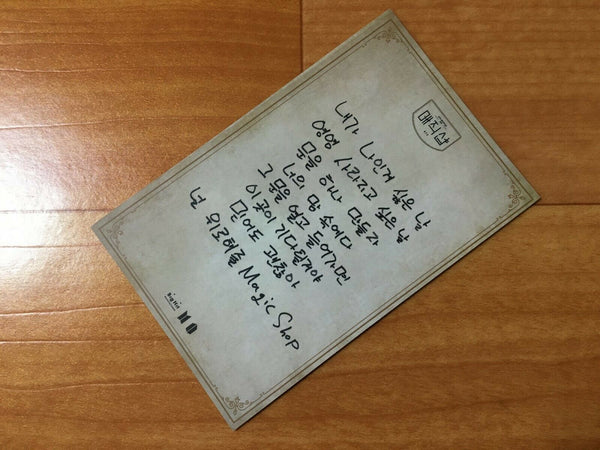 매직샵
내가 나인게 싫은 날
영영 사라지고 싶은 날
문을 하나 만들자
너의 맘 속에다
그 문을 열고 들어가면
이 곳이 기다릴거야
믿어도 괜찮아
널 위로해줄 Magic Shop
BigHit